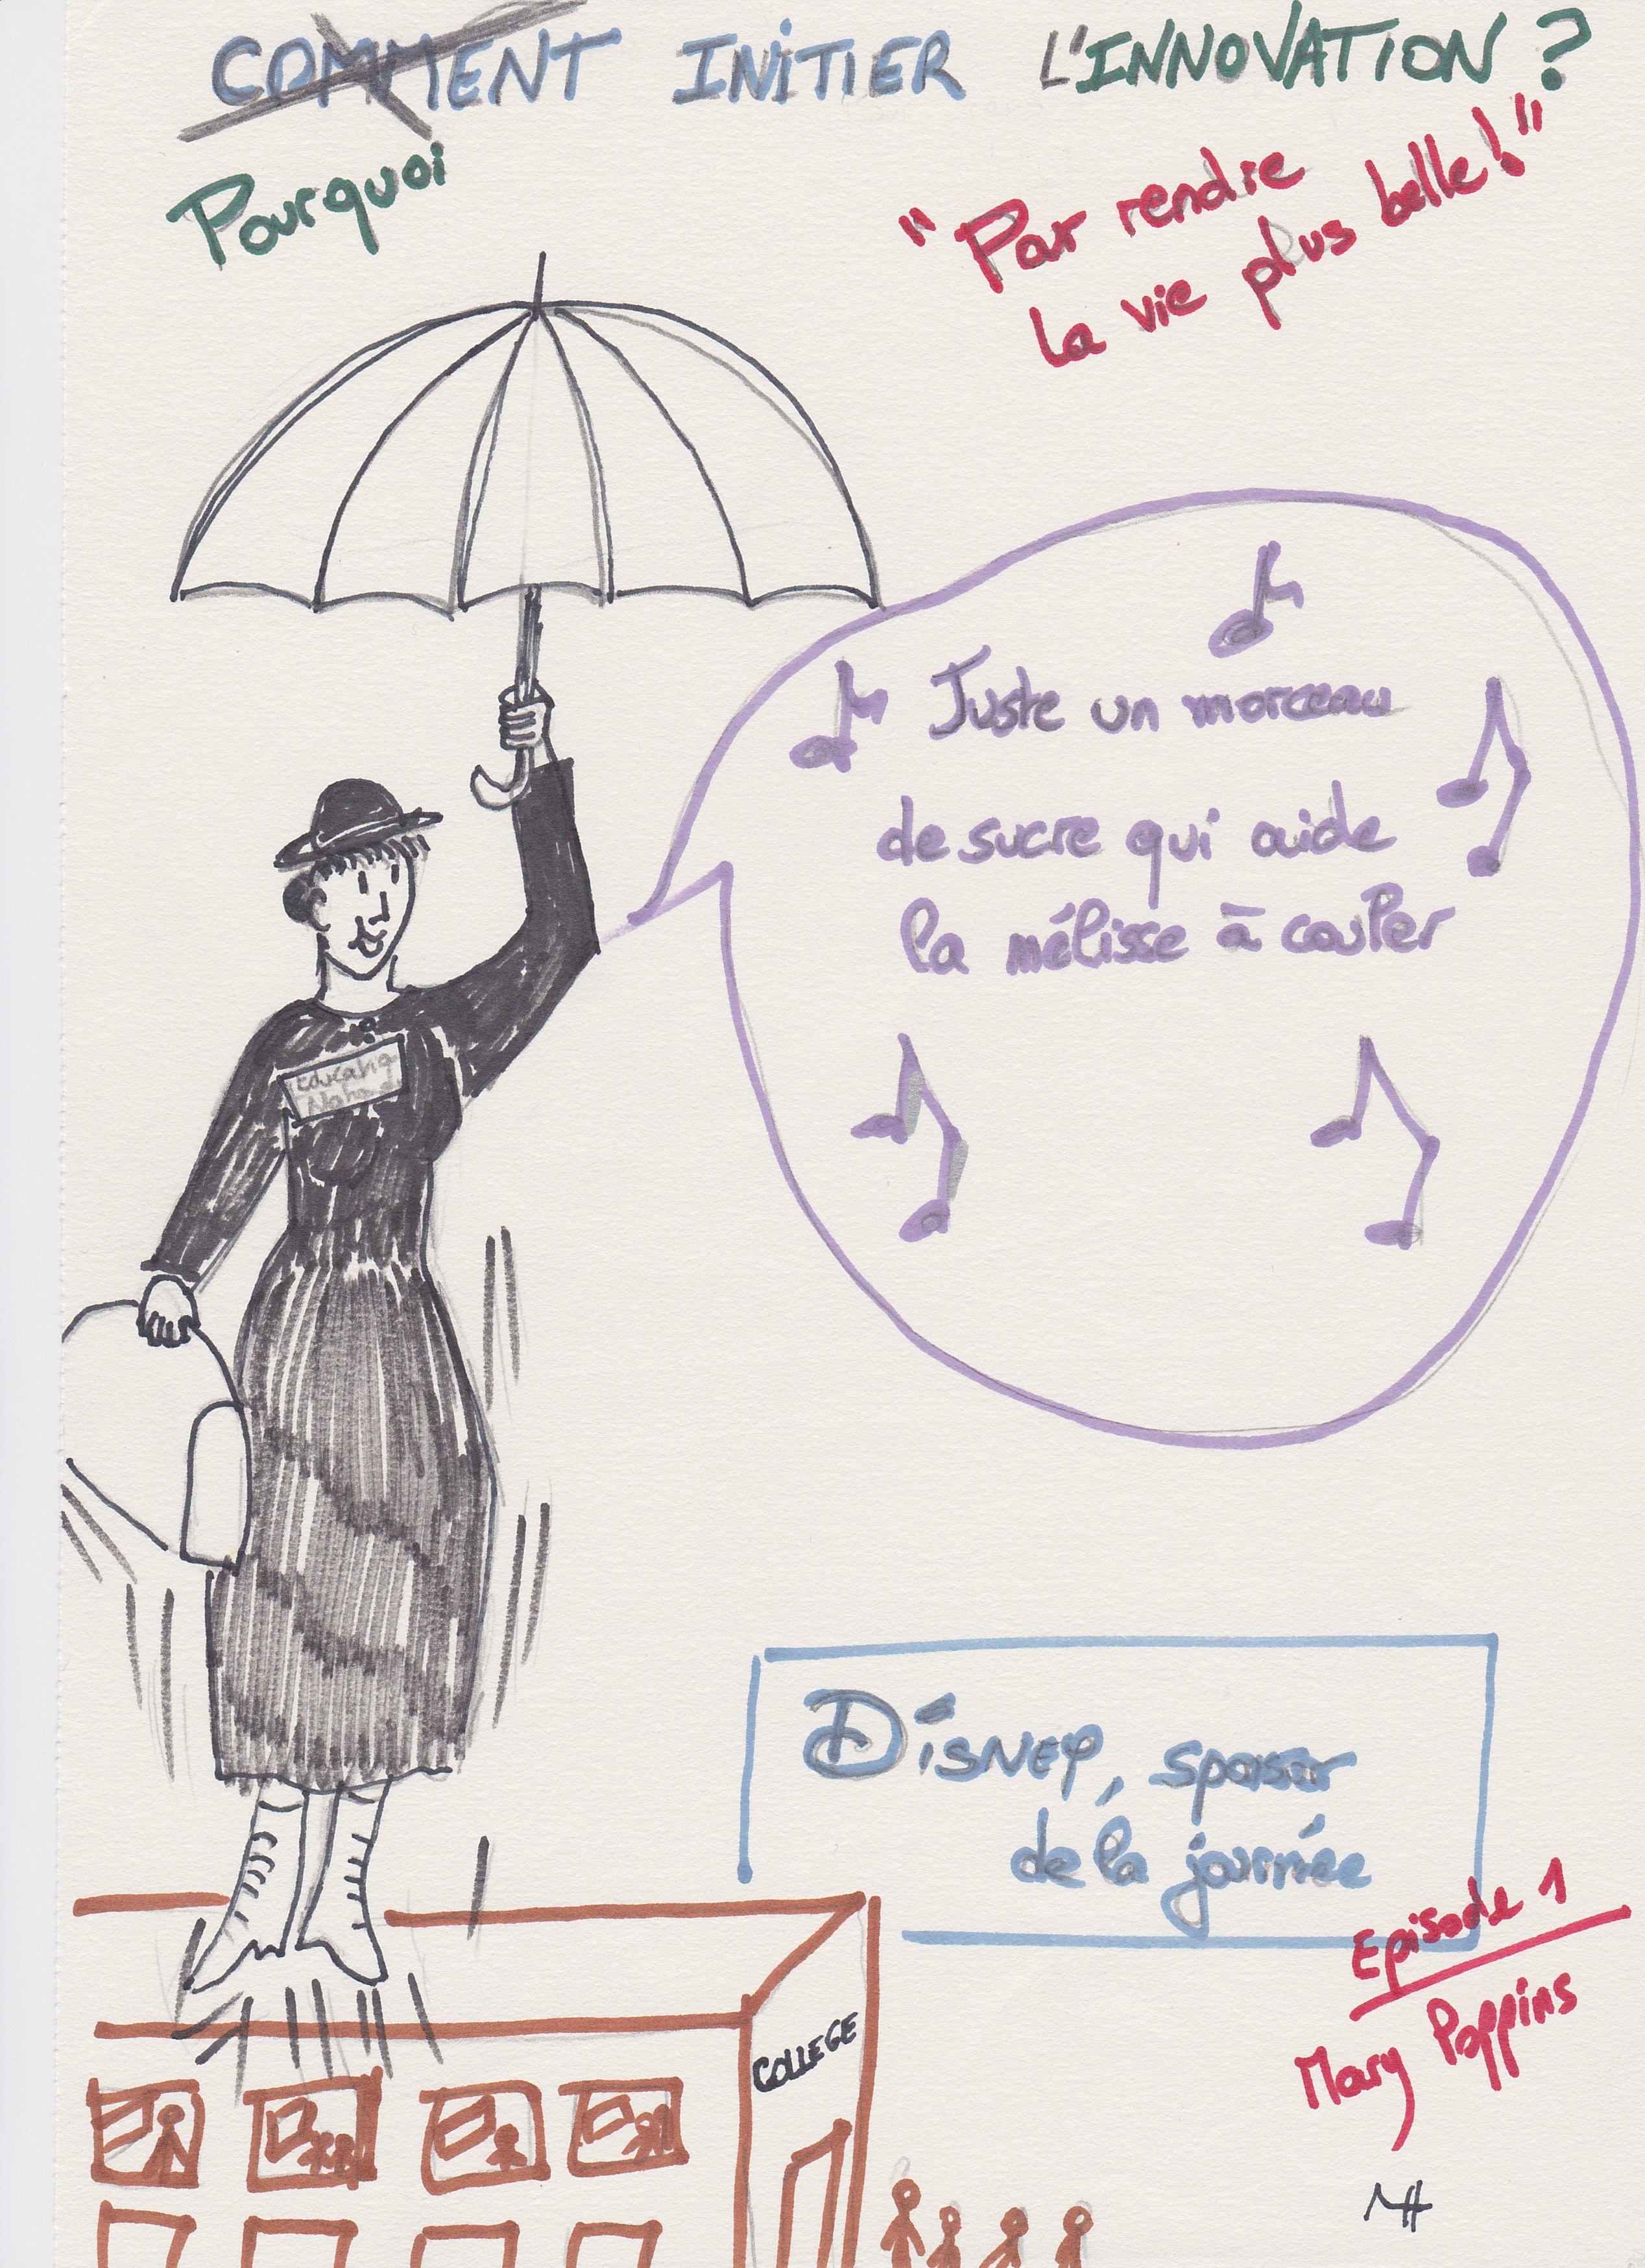 COMMENT INITIER L'INNOVATION ?
Pourquoi
"Pour rendre
la vie plus belle!"
Juste un morceau
de sucre qui aide
la mélisse à couler
Education
Nationale
Disney, sponsor
de la journée
Episode 1
Mary Poppins
COLLEGE
MH